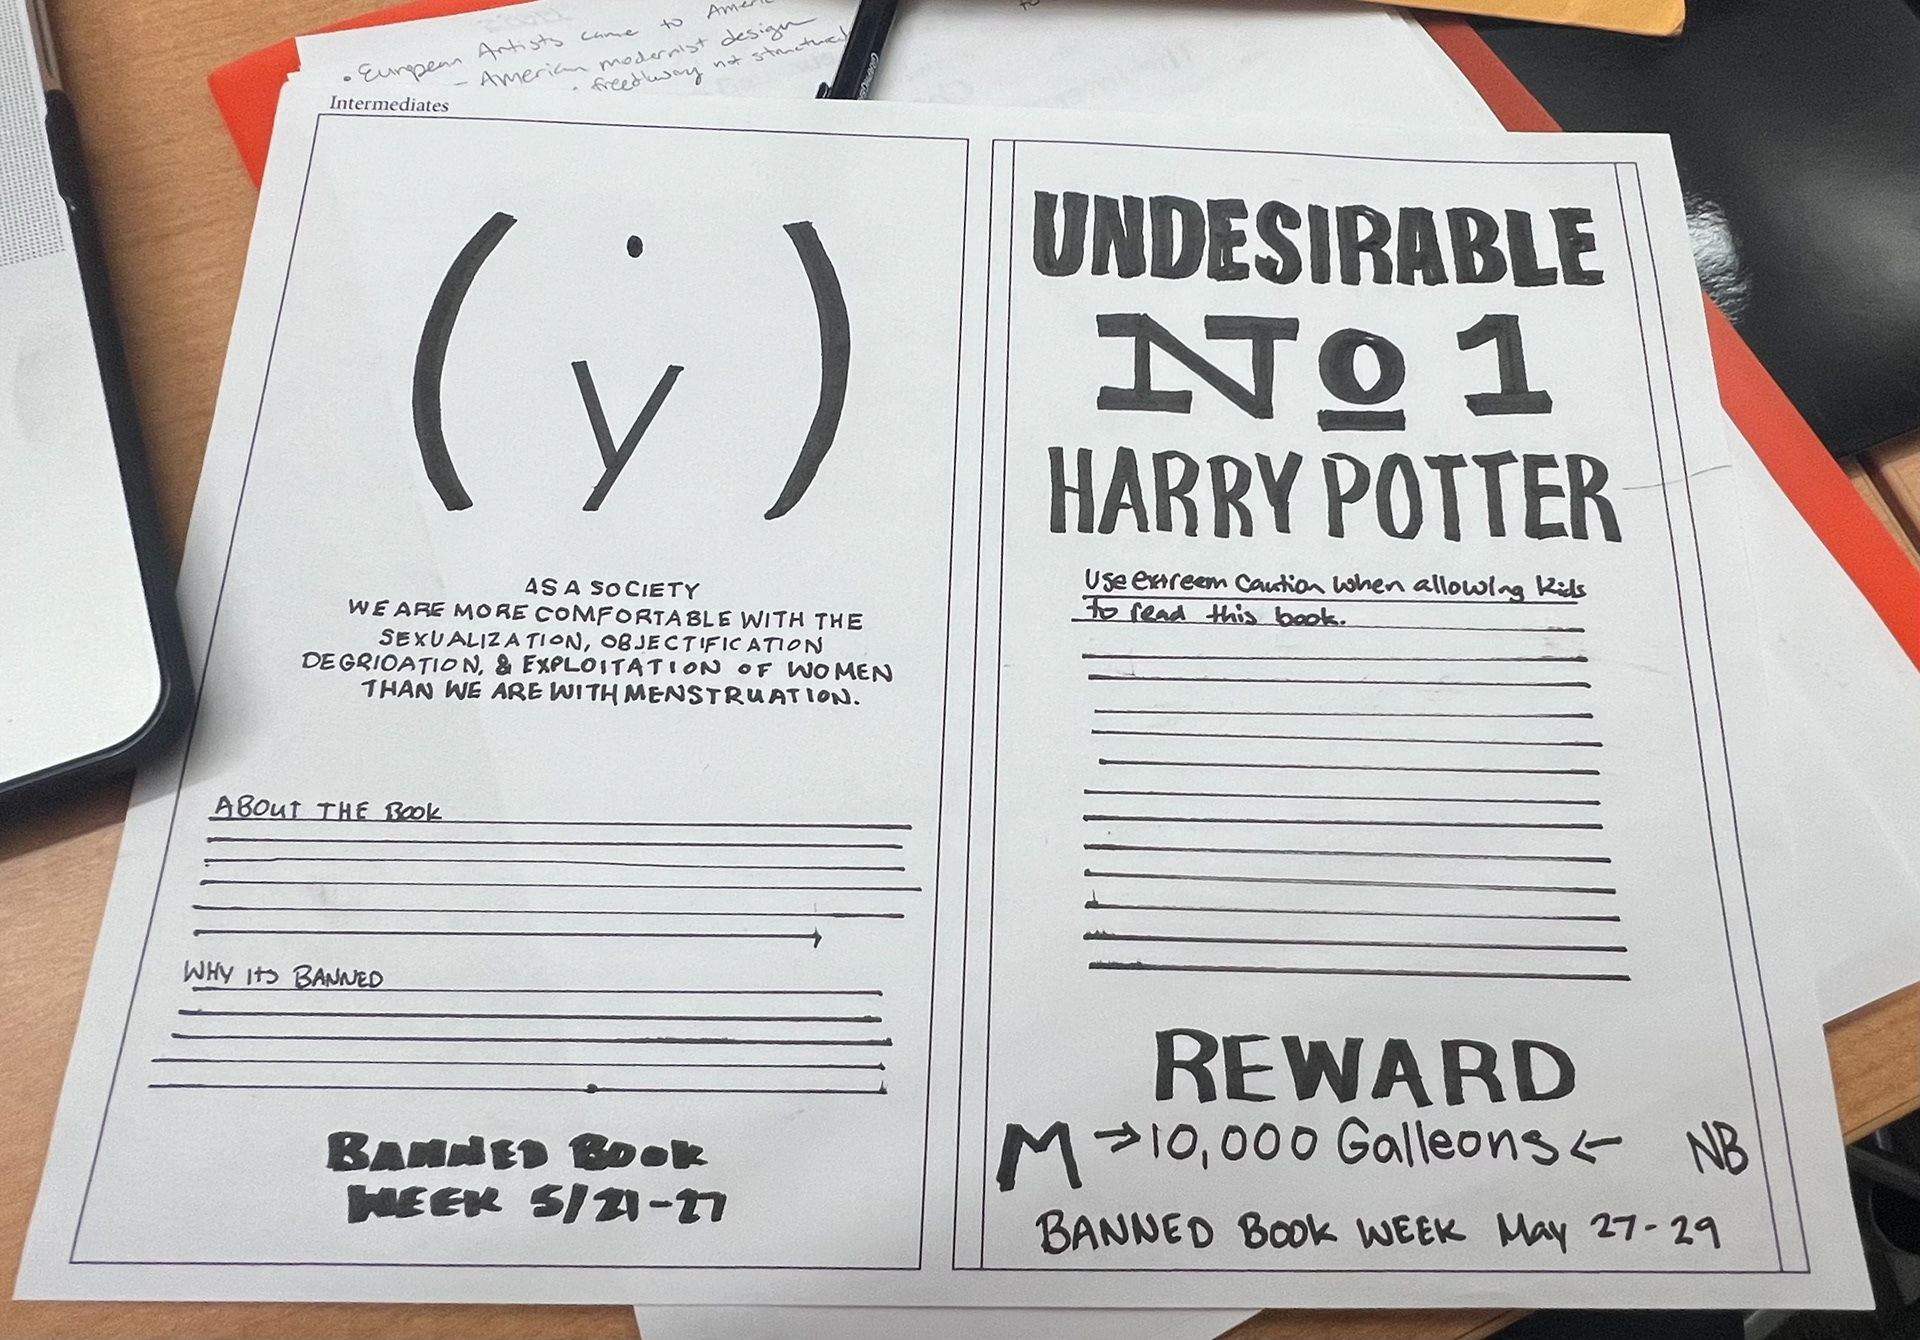 • European Artists came to Americ
- American modernist design
• freeflowing not structured
Intermediates
( y )
AS A SOCIETY
WE ARE MORE COMFORTABLE WITH THE
SEXUALIZATION, OBJECTIFICATION
DEGRIDATION, & EXPLOITATION OF WOMEN
THAN WE ARE WITH MENSTRUATION.
ABOUT THE BOOK
WHY ITS BANNED
BANNED BOOK
WEEK 5/21-27
UNDESIRABLE
No 1
HARRY POTTER
Use extreem Caution when allowing kids
to read this book.
REWARD
M →10,000 Galleons← NB
BANNED BOOK WEEK May 27-29